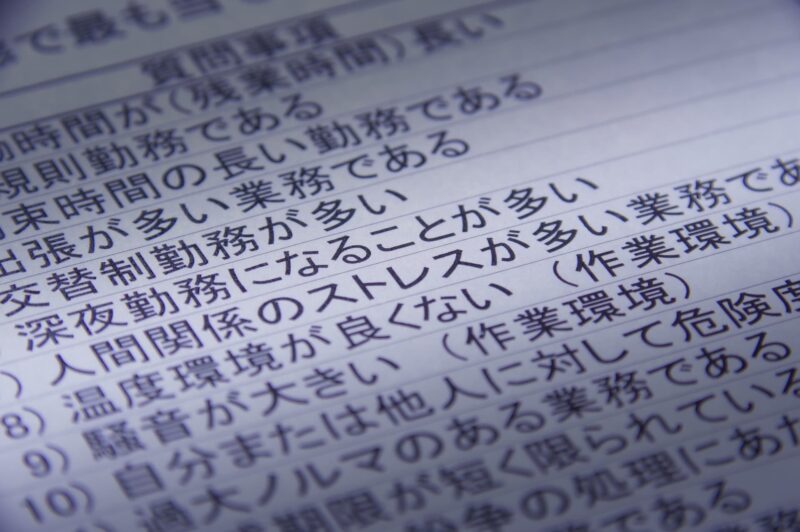 で最も当て
質問事項
時間が(残業時間)長い
規則勤務である
束時間の長い勤務である
出張が多い業務である
交替制勤務が多い
深夜勤務になることが多い
) 人間関係のストレスが多い業務であ
8) 温度環境が良くない (作業環境)
9) 騒音が大きい (作業環境)
10) 自分または他人に対して危険度
過大ノルマのある業務である
期限が短く限られている
争の処理にあた
である